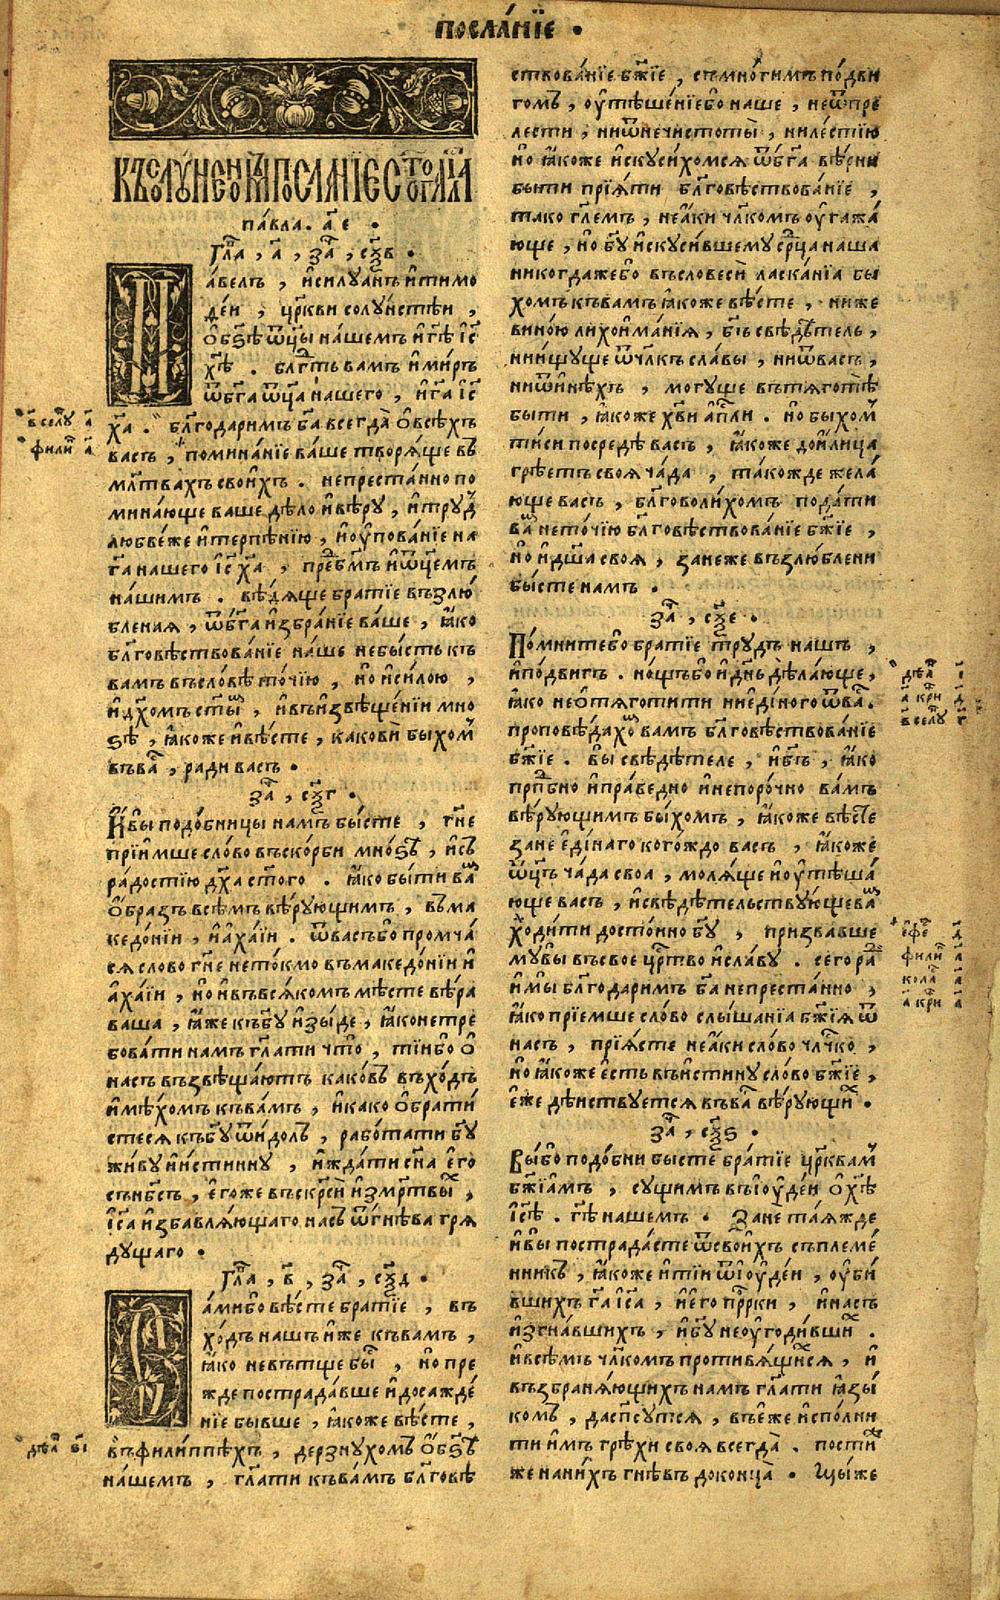 посла́нїе .
Къ солꙋ́нѧнѡⷨ посла́нїе ст҃гѡ ап҃ла
па́вла . а҃ е .
Гл҃а , а҃ , за҃ , сѯ҃в .
Па́велъ , и҆силꙋа́нъ и҆тимо
ѳе́и , цр҃кви солꙋ́нстѣи ,
о҆бз҃ѣ ѿц҃ы на́шемъ и҆ гд҃ѣ іс҃
хр҃ѣ . бл҃гть вамъ и҆ миръ
ѿб҃га ѿц҃а нашего , и҆ г҃а іс҃
х҃а . бл҃годаримъ б҃а всегда̀ о҆ всѣхъ
васъ , помина́нїе ва́ше творѧ́ще въ
мл҃твахъ свои́хъ . непреста́нно по
мина́юще ваше дѣ́ло и҆ вѣ́рꙋ , и҆ трꙋⷣ
любве́же и҆ терпѣ́нїю , и҆ ᲂу҆пова́нїе на
г҃а нашего іс҃ х҃а , пред̾бм҃ъ и҆ ѿц҃емъ
на́шимъ . вѣ́дѧще братїе възлю́
бленаѧ , ѿб҃га и҆збра́нїе ва́ше , ꙗ҆́ко
бл҃говѣствова́нїе на́ше небы́сть къ
вамъ въсло́вѣ то́чїю , но и҆ си́лою ,
и҆ дх҃омъ ст҃ыⷨ , и҆ въи҆звѣще́нїи мно
зѣ , ꙗ҆́коже и҆ вѣ́сте , какови̏ быхоⷨ
въваⷭ , ради васъ .
за҃ , сѯ҃г .
И҆вы подо́бницы намъ бы́сте , гн҃е
прїи́мше сло́во въско́рби мно́зѣ , и҆съ
ра́достїю дх҃а ст҃о́го . ꙗ҆́ко бы́ти ваⷨ
о҆́бразъ всѣ́мъ вѣ́рꙋющимъ , въма
кедо́нїи , и҆ а҆ха́їи . ѿ васъ бо промча́
сѧ слово гн҃е нето́кмо въмакедо́нїи и҆
а҆ха́їи , но и҆ въвсѧ́комъ мѣ́сте вѣ́ра
ваша , ꙗ҆́же къбг҃ꙋ и҆зы́де , ꙗ҆́ко нетре́
бовати намъ гл҃ати что̀ , ті́и бо о҆
насъ възвѣща́ютъ како́въ въхо́дъ
и҆мѣ́хомъ къва́мъ , и҆ како о҆брати́
стесѧ къбг҃ꙋ ѿ и҆́долъ , рабо́тати бг҃ꙋ
жи́вꙋ и҆ и҆́стиннꙋ , и҆жда́ти сн҃а е҆го̀
съ нб҃съ , е҆го́же въскр҃сѝ и҆зме́ртвыⷯ ,
іс҃а и҆збавлѧ́ющаго насъ ѿ гнѣ́ва грѧ
дꙋщаго .
Гл҃а , в҃ , за҃ , сѯ҃д .
Са́ми бо вѣ́сте братїе , въ
хо́дъ нашъ и҆́же къвамъ ,
ꙗ҆́ко невътще бы́ⷭ , но пре
жде пострада́вше и҆ досажде́
нїе бывше , ꙗ҆́коже вѣ́сте ,
въфили́ппѣхъ , дерзнꙋ́хомъ о҆бз҃ѣ
на́шемъ , гл҃ати къва́мъ бл҃говѣ
ствова́нїе бж҃їе , съмно́гимъ по́дви
гомъ , ᲂу҆тѣше́нїе бо наше , не ѿпре́
лести , ни ѿнечистоты̀ , ни ле́стїю
но ꙗ҆́коже и҆скꙋси́хомсѧ ѿб҃га вѣ́рни
быти прїѧ́ти бл҃говѣствова́нїе ,
тако гл҃емъ , неа҆́ки чл҃комъ ᲂу҆гажа́
юще , но бг҃ꙋ и҆скꙋси́вшемꙋ ср҃ца наша
никогдаже бо въсловесѝ ласка́нїа бы
хомъ къвамъ ꙗ҆́коже вѣ́сте , ниже
вино́ю лихои҆ма́нїѧ , бг҃ъ свѣдѣ́тель ,
ни и҆́щꙋще ѿчл҃къ сла́вы , ни ѿвасъ ,
ни ѿи҆нѣ́хъ , могꙋще въ тѧготѣ̀
быти , ꙗ҆́коже хв҃и ап҃ли . но быхоⷨ
ти́си посредѣ васъ , ꙗ҆́коже дои́лица
грѣ́етъ своѧ̀ ча́да , та́кожде жела́
юще васъ , бл҃говоли́хомъ пода́ти
ваⷨ нето́чїю бл҃говѣствова́нїе бж҃їе ,
но и҆ дш҃а своѧ , зане́же възлю́блени
бы́сте намъ .
за҃ , сѯ҃е .
По́мните бо бра́тїе трꙋдъ нашъ ,
и҆ по́двигъ . но́щъ бо и҆ дн҃ь дѣ́лающе ,
ꙗ҆́ко не о҆тѧготи́ти ни е҆ди́ного ѿваⷭ .
проповѣ́дахоⷨ вамъ бл҃говѣствова́нїе
бж҃їе . вы свѣдѣ́теле , и҆ бг҃ъ , ꙗ҆́ко
прп҃бно и҆ пра́ведно и҆ непоро́чно ва́мъ
вѣ́рꙋющимъ бы́хомъ , ꙗ҆́коже вѣ́сте
зане е҆ди́наго кого́ждо васъ , ꙗ҆́коже
ѿц҃ъ ча́да своа , молѧ́ще и҆ ᲂу҆тѣша́
юще васъ , и҆ свѣдѣ́тельствꙋюще ваⷨ
ходи́ти досто́йно бг҃ꙋ , призва́вше
мꙋ вы въсвое црⷭ҇тво и҆ сла́вꙋ . сего раⷣ
и҆ мы бл҃годаримъ б҃а непреста́нно ,
ꙗ҆́ко прїе́мше сло́во слы́шанїа бж҃їѧ ѿ
насъ , прїѧ́сте неа҆́ки сло́во чл҃чко ,
но ꙗ҆́коже е҆́сть въи҆́стинꙋ сло́во бж҃їе ,
е҆́же дѣ́иствꙋетсѧ въваⷭ вѣ́рꙋющиⷯ .
за҃ , сѯ҃ѕ .
Вы́ бо подо́бни бысте бра́тїе цр҃квамъ
бж҃їамъ , сꙋщимъ въїᲂу҆де́и о҆ хр҃ѣ
іс҃ѣ . гд҃ѣ нашемъ . Зане та́ѧжде
и҆ вы пострада́сте ѿ свои́хъ съплеме́
нникъ , ꙗ҆́коже и҆ ті́и ѿ їᲂу҆де́и , ᲂу҆би́
вшихъ г҃а іс҃а , и҆ е҆го прⷪ҇рки , и҆ насъ
и҆згна́вшихъ , и҆ бг҃ꙋ не ᲂу҆годи́вшиⷯ .
и҆ всѣ́мъ чл҃комъ проти́вѧщихсѧ , и҆
възбранѧ́ющихъ намъ гл҃ати ꙗ҆зы́
комъ , да сп҃сꙋтсѧ , въе҆́же и҆спо́лни
ти и҆мъ грѣ́хи своѧ всегда̀ . пости́
же на ни́хъ гнѣ́въ до конца̀ . Мы́ же
в҃ селꙋ а҃
фили а҃
дѣѧ ві҃
дѣѧ
а҃ кри
в҃ селꙋ
е҆фе д҃
фили а҃
кола а҃
а҃ кри а҃